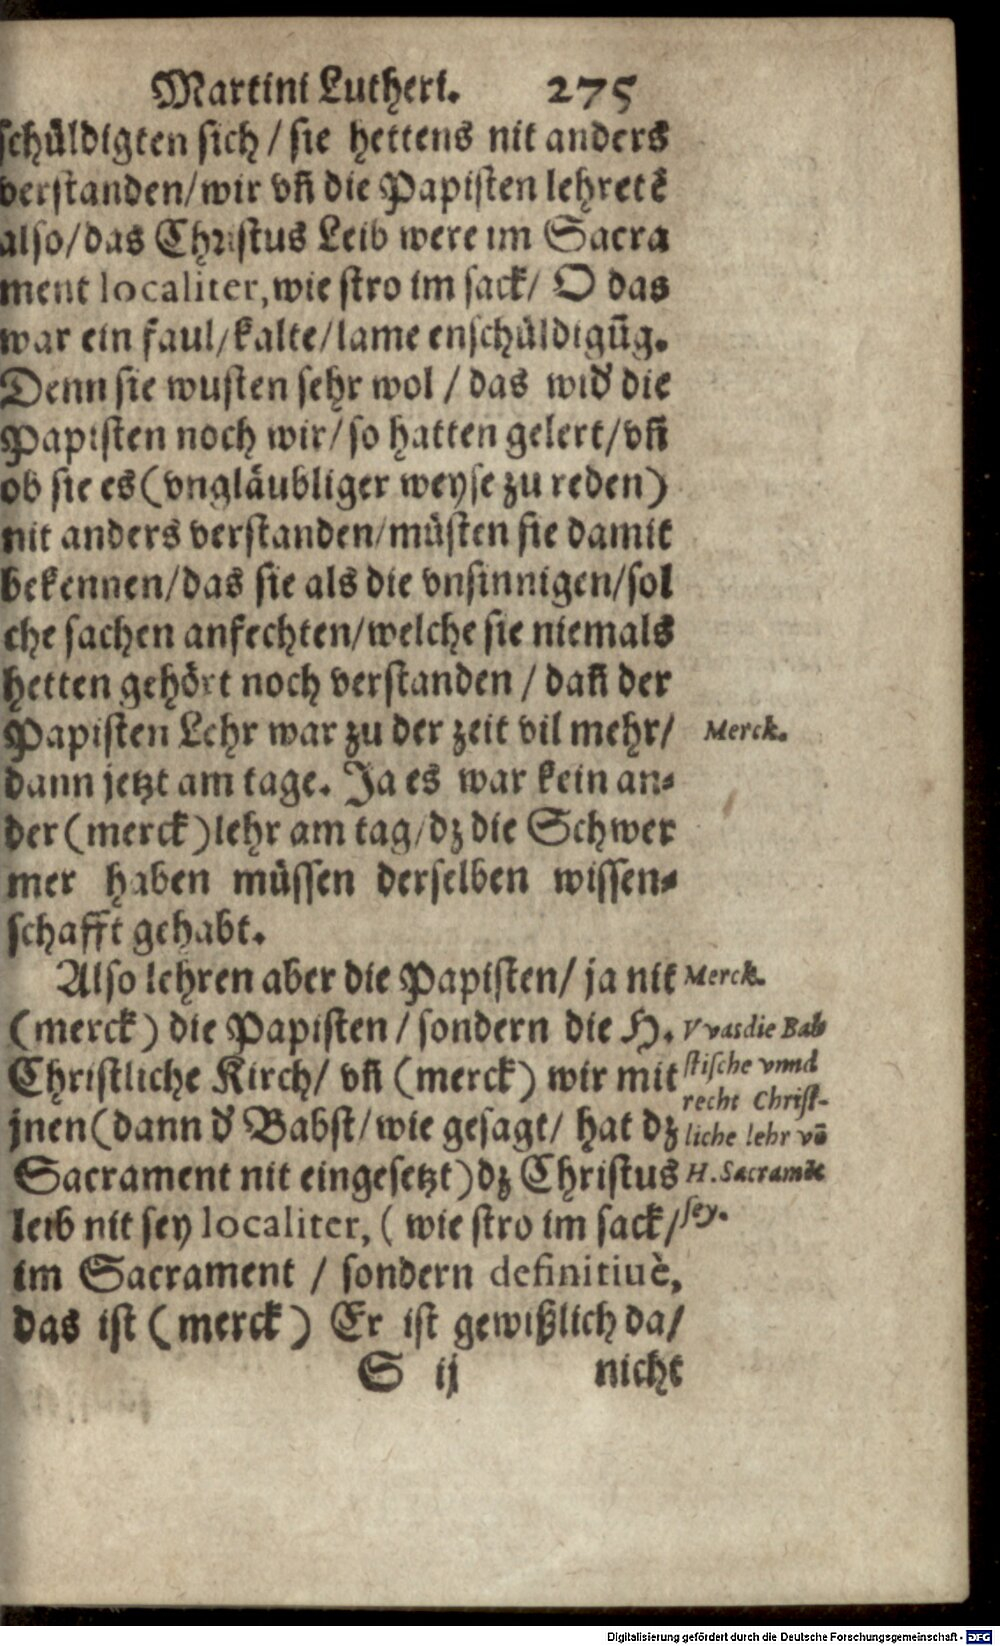 Martini Lutheri. 275
schüldigten sich / sie hettens nit anders
verstanden/wir vñ die Papisten lehretẽ
also/das Christus Leib were im Sacra
ment localiter,wie stro im sack/ O das
war ein faul/kalte/lame enschüldigũg.
Denn sie wusten sehr wol / das wid' die
Papisten noch wir/so hatten gelert/vñ
ob sie es(vngläubliger weyse zu reden)
nit anders verstanden/müsten sie damit
bekennen/das sie als die vnsinnigen/sol
che sachen anfechten/welche sie niemals
hetten gehört noch verstanden / dañ der
Papisten Lehr war zu der zeit vil mehr/
Merck.
dann jetzt am tage. Ja es war kein an-
der(merck)lehr am tag/dz die Schwer
mer haben müssen derselben wissen-
schafft gehabt.
Also lehren aber die Papisten/ ja nit
Merck.
(merck) die Papisten / sondern die H.
Christliche Kirch/ vñ (merck) wir mit
jnen(dann d' Babst/wie gesagt/ hat dz
Sacrament nit eingesetzt)dz Christus
leib nit sey localiter, ( wie stro im sack/
im Sacrament / sondern definitiuè,
das ist (merck) Er ist gewißlich da/
VVas die Bab
stische vnnd
recht Christ-
liche lehr võ
H. Sacramẽt
sey.
S ij nicht
Digitalisierung gefördert durch die Deutsche Forschungsgemeinschaft - DFG